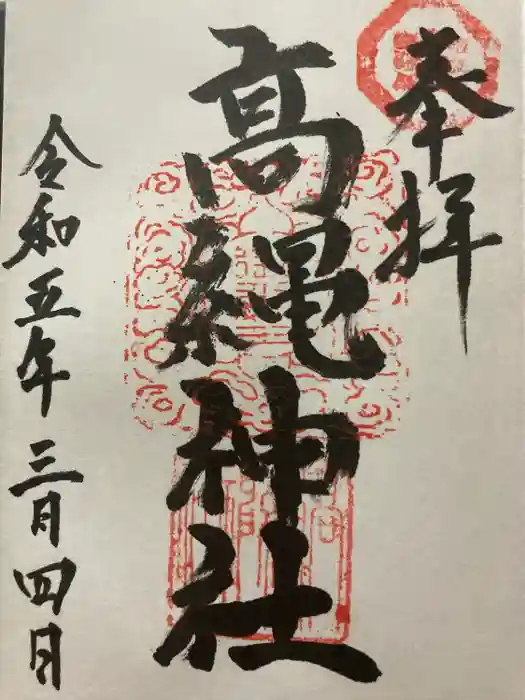 奉拝
高縄神社
令和五年三月四日